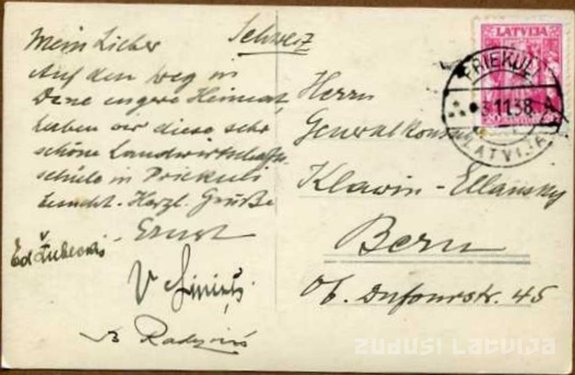 Schweiz
Mein Lieber
Auf den Weg in
Deine engere Heimat,
haben wir diese sehr
schöne Landwirtschafts
schule in Priekuli
besucht. Herzl. Grüße
Ernst
Ed
V
Herrn
Generalkonsul
Klawin-Ellansky
Bern
Ob. Dufourstr. 45
LATVIJA
PRIEKUĻI
11 38 A
LATVIJA
20
ZUDUSI LATVIJA